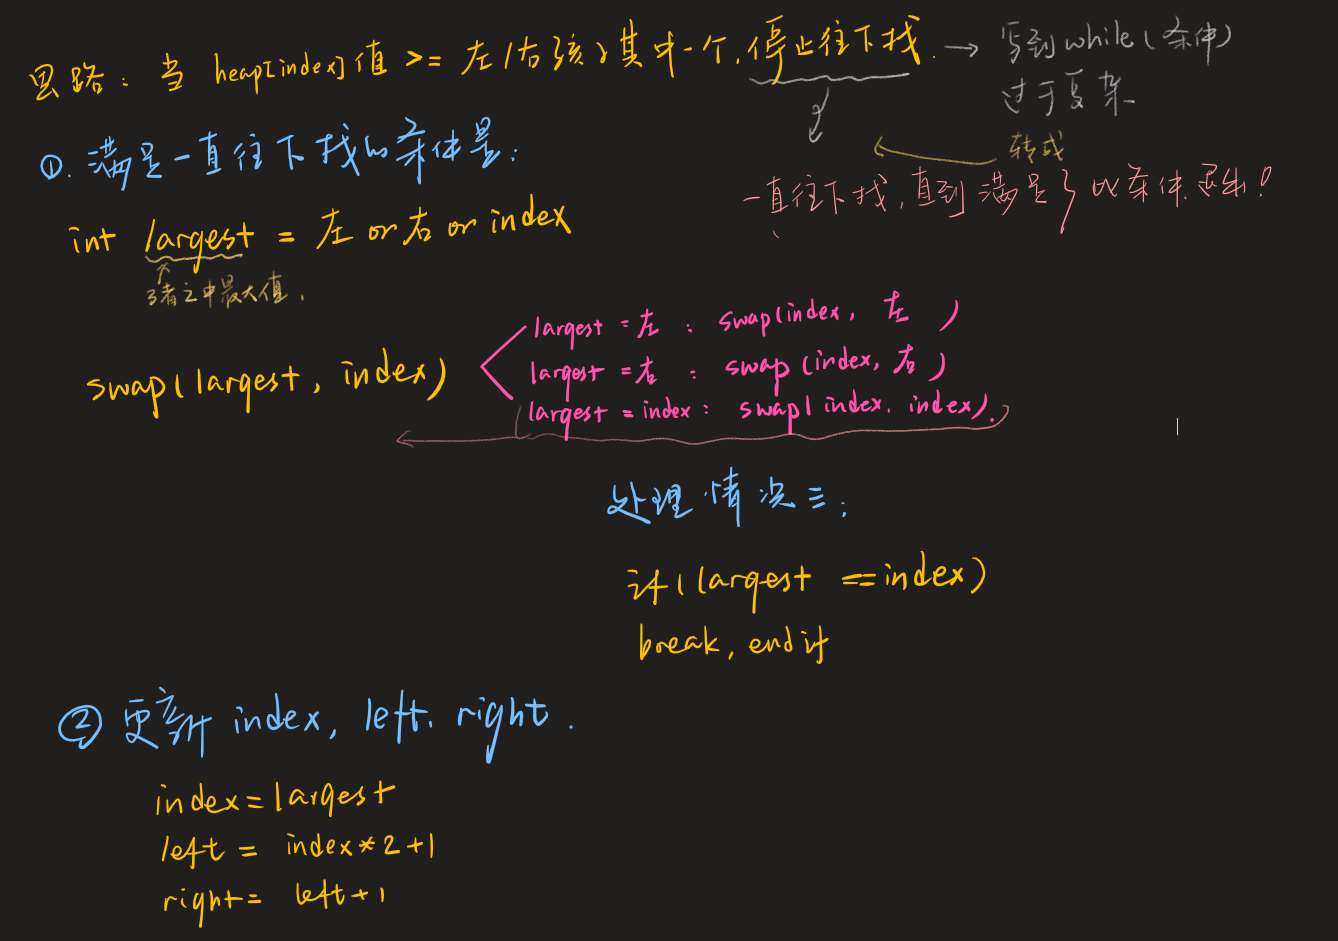 思路：当 heap[index]值 >= 左/右孩子其中一个，停止往下找. → 写到while(条件)
过于复杂
转成
一直往下找，直到满足了以条件.退出！
①. 满足一直往下找的条件是：
int largest = 左 or 右 or index
3者之中最大值.
swap(largest, index)
largest = 左 : swap(index, 左)
largest = 右 : swap(index, 右)
largest = index : swap(index, index).
处理情况三：
if(largest == index)
break, end if
② 更新 index, left, right.
index = largest
left = index*2+1
right = left+1